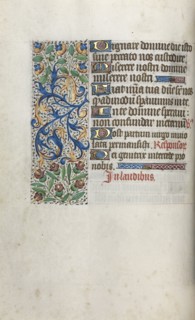 Dignare domine die isto
sine peccato nos custodire.
Miserere nostri domine
miserere nostri.
Fiat misericordia tua domine super nos
quemadmodum speravimus in te.
In te domine speravi:
non confundar in eternum.
Post partum virgo invio
lata permansisti. Responsor.
Dei genitrix intercede pro
nobis.
In laudibus.